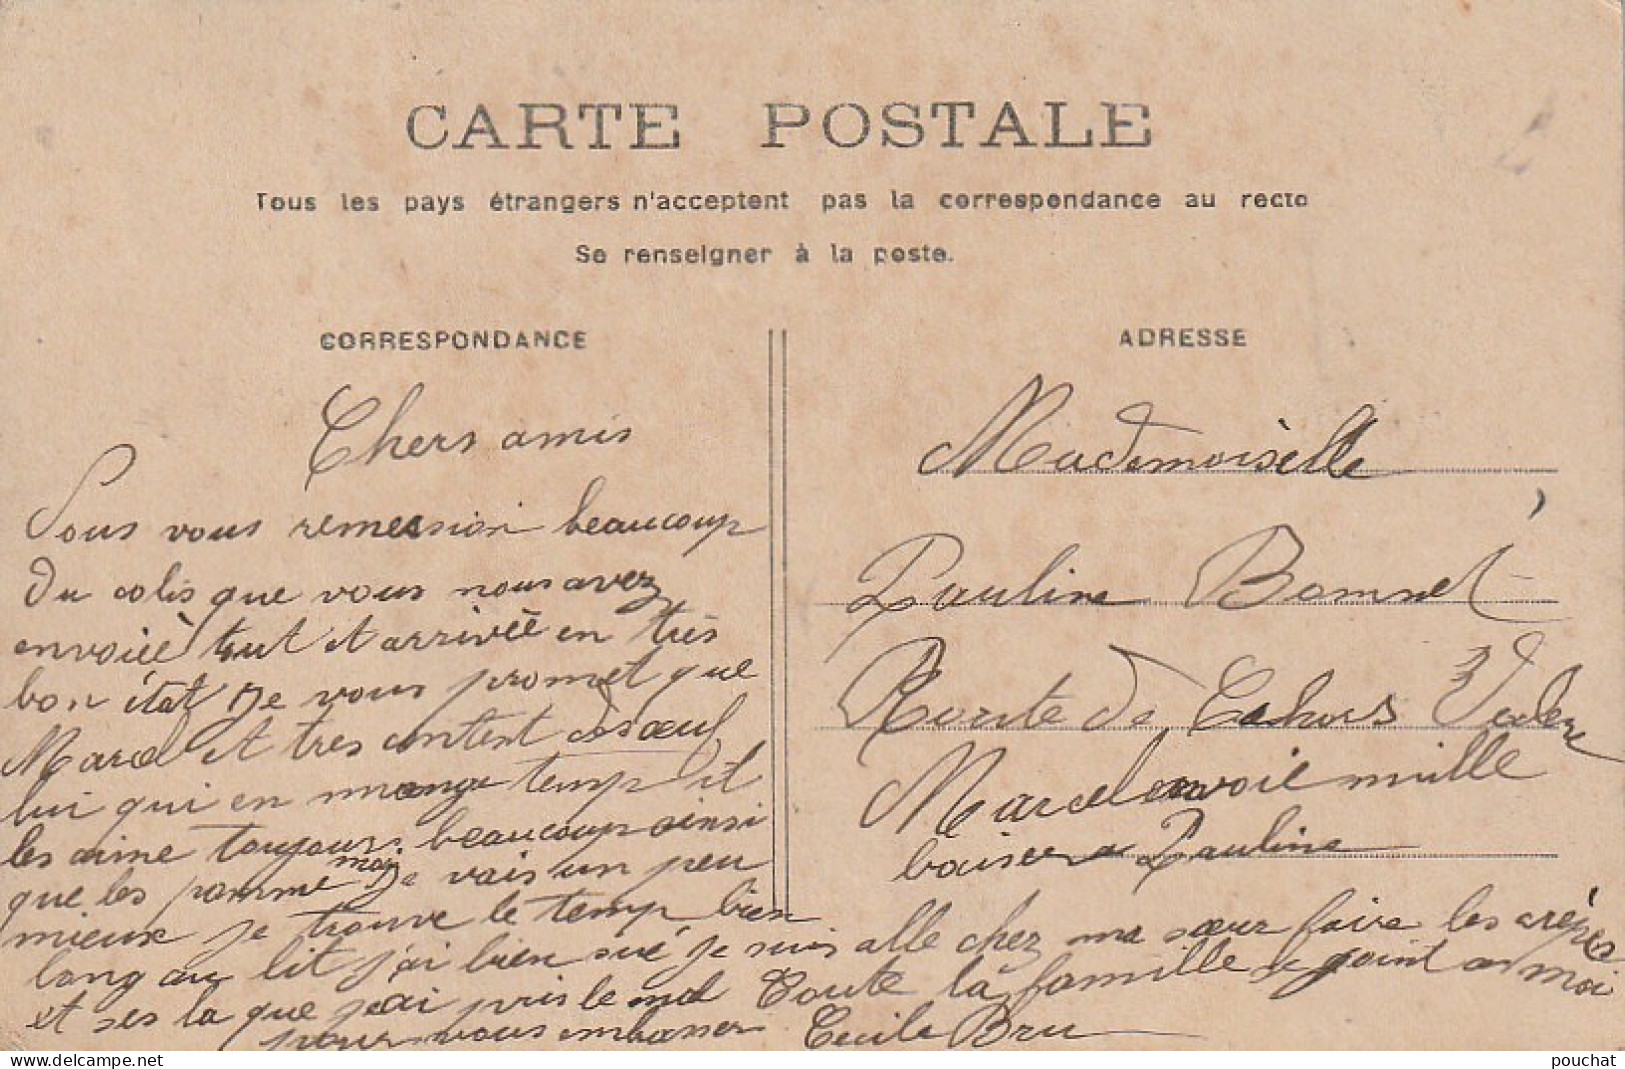 CARTE POSTALE
Tous les pays étrangers n'acceptent pas la correspondance au recto
Se renseigner à la poste.
CORRESPONDANCE
Chers amis
Nous vous remersion beaucoup
Du colis que vous nous avez
envoiéè tout et arrivéè en très
bon état Je vous promet que
Marcel et très contest
lui qui en mange temp il
les aime toujours beaucoup ainsi
que les pomme moi Je vais un peu
mieux je trouve le temp bien
long au lit j'ai bien sué je suis allé chez ma sœur faire les crépes
et ses la que j'ai pris le mal Toute la famille se joint a moi
pour vous embrasser Cecile Bru
ADRESSE
Mademoiselle
Pauline Bonnet
Route de Cahors
Marcel envoie mille
baiser a Pauline
pouchat